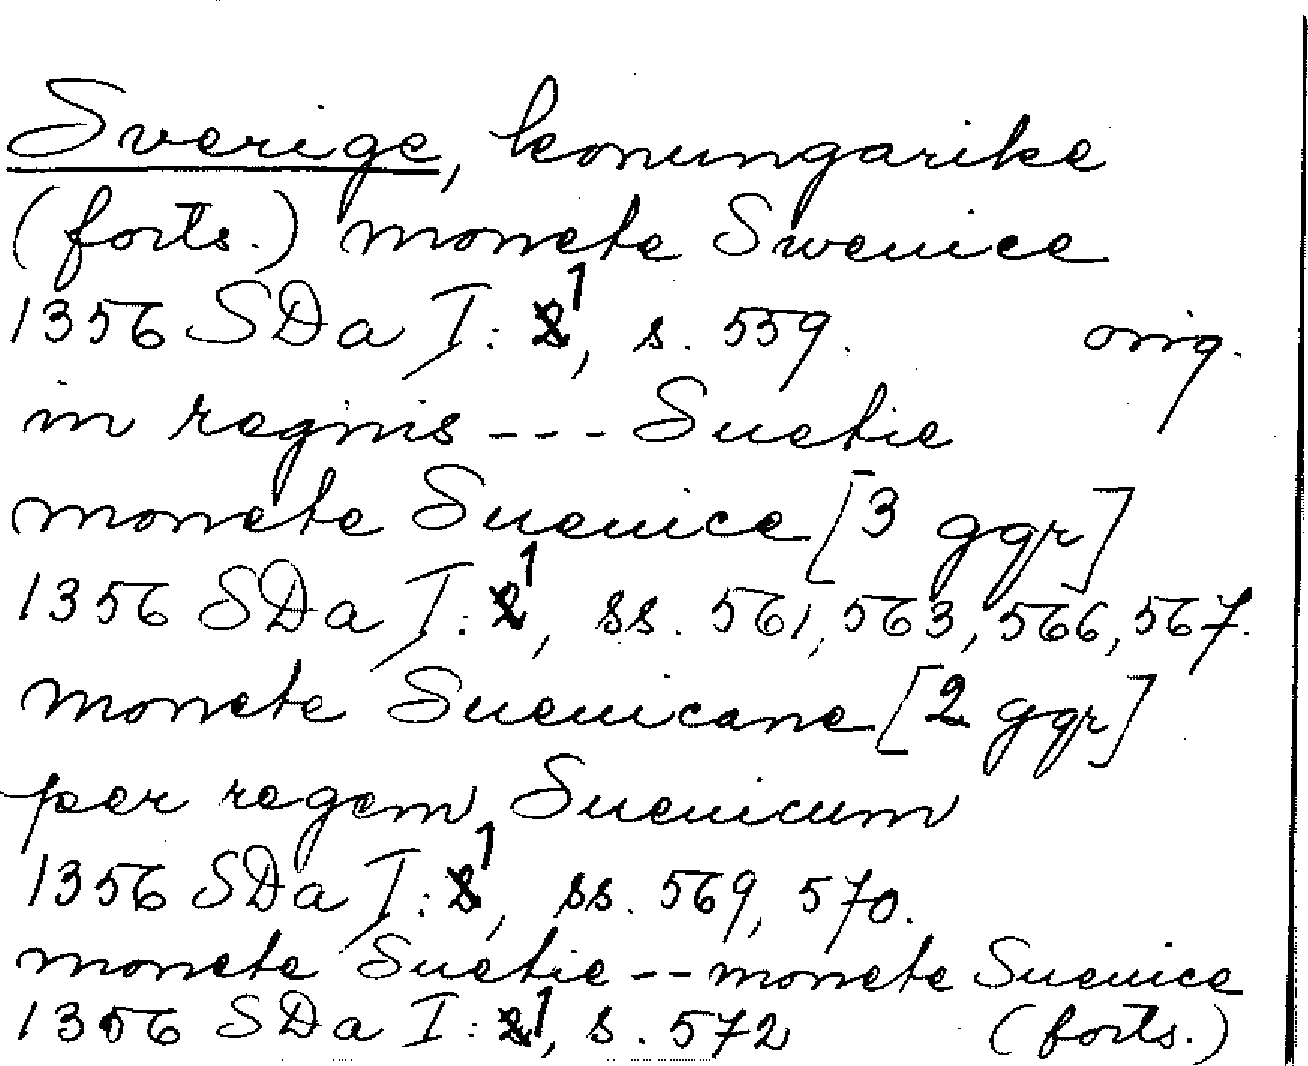 Sverige, konungarike
(forts.) monete Swenice
1356 SDa I: 1, s. 559. orig.
in regnis --- Suetie
monete Suenice [3 ggr]
1356 SDa I: 1, ss. 561, 563, 566, 567.
monete Suenicane [2 ggr]
per regem Suenicum
1356 SDa I: 1, ss. 569, 570.
monete Suetie -- monete Suenice
1356 SDa I: 1, s. 572 (forts.)